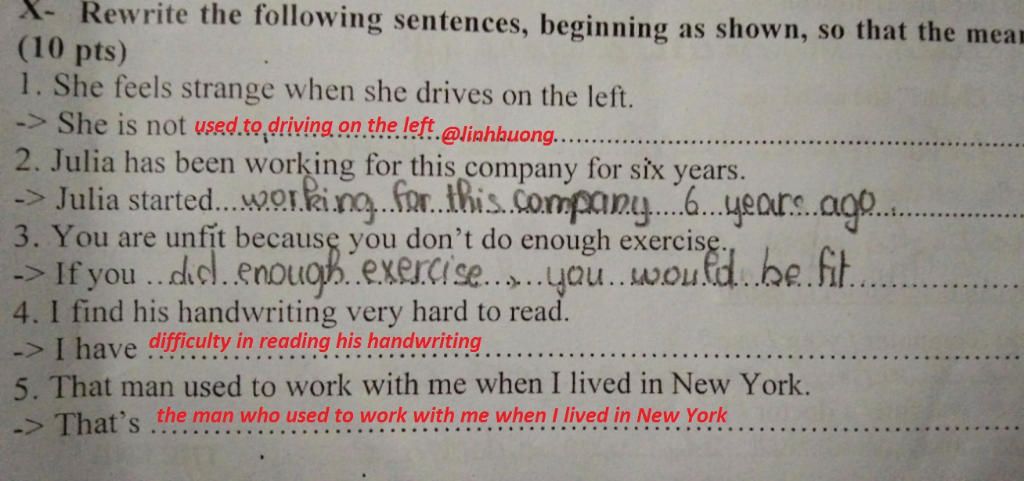 X- Rewrite the following sentences, beginning as shown, so that the mean
(10 pts)
1. She feels strange when she drives on the left.
-> She is not used to driving on the left @linhbuong
2. Julia has been working for this company for six years.
-> Julia started...working for this company 6 years ago
3. You are unfit because you don't do enough exercise.
-> If you ...did enough exercise, you would be fit
4. I find his handwriting very hard to read.
-> I have difficulty in reading his handwriting
5. That man used to work with me when I lived in New York.
-> That's the man who used to work with me when I lived in New York